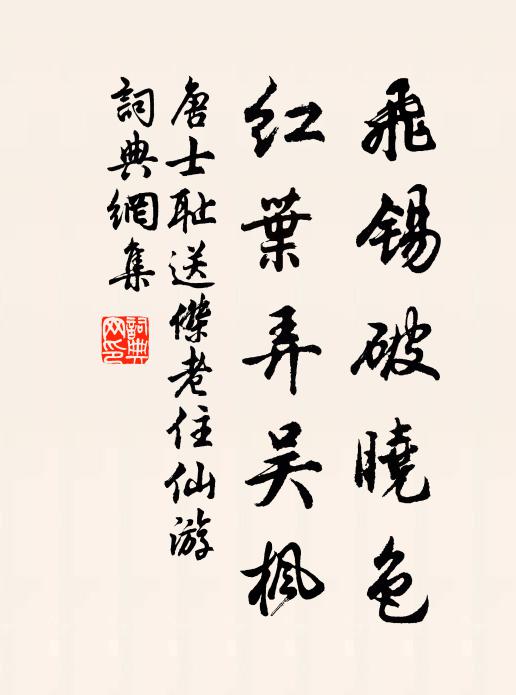 飛錫破曉色
紅葉弄吳楓
唐士耻送傑老住仙游
詞典網集
詞典网印